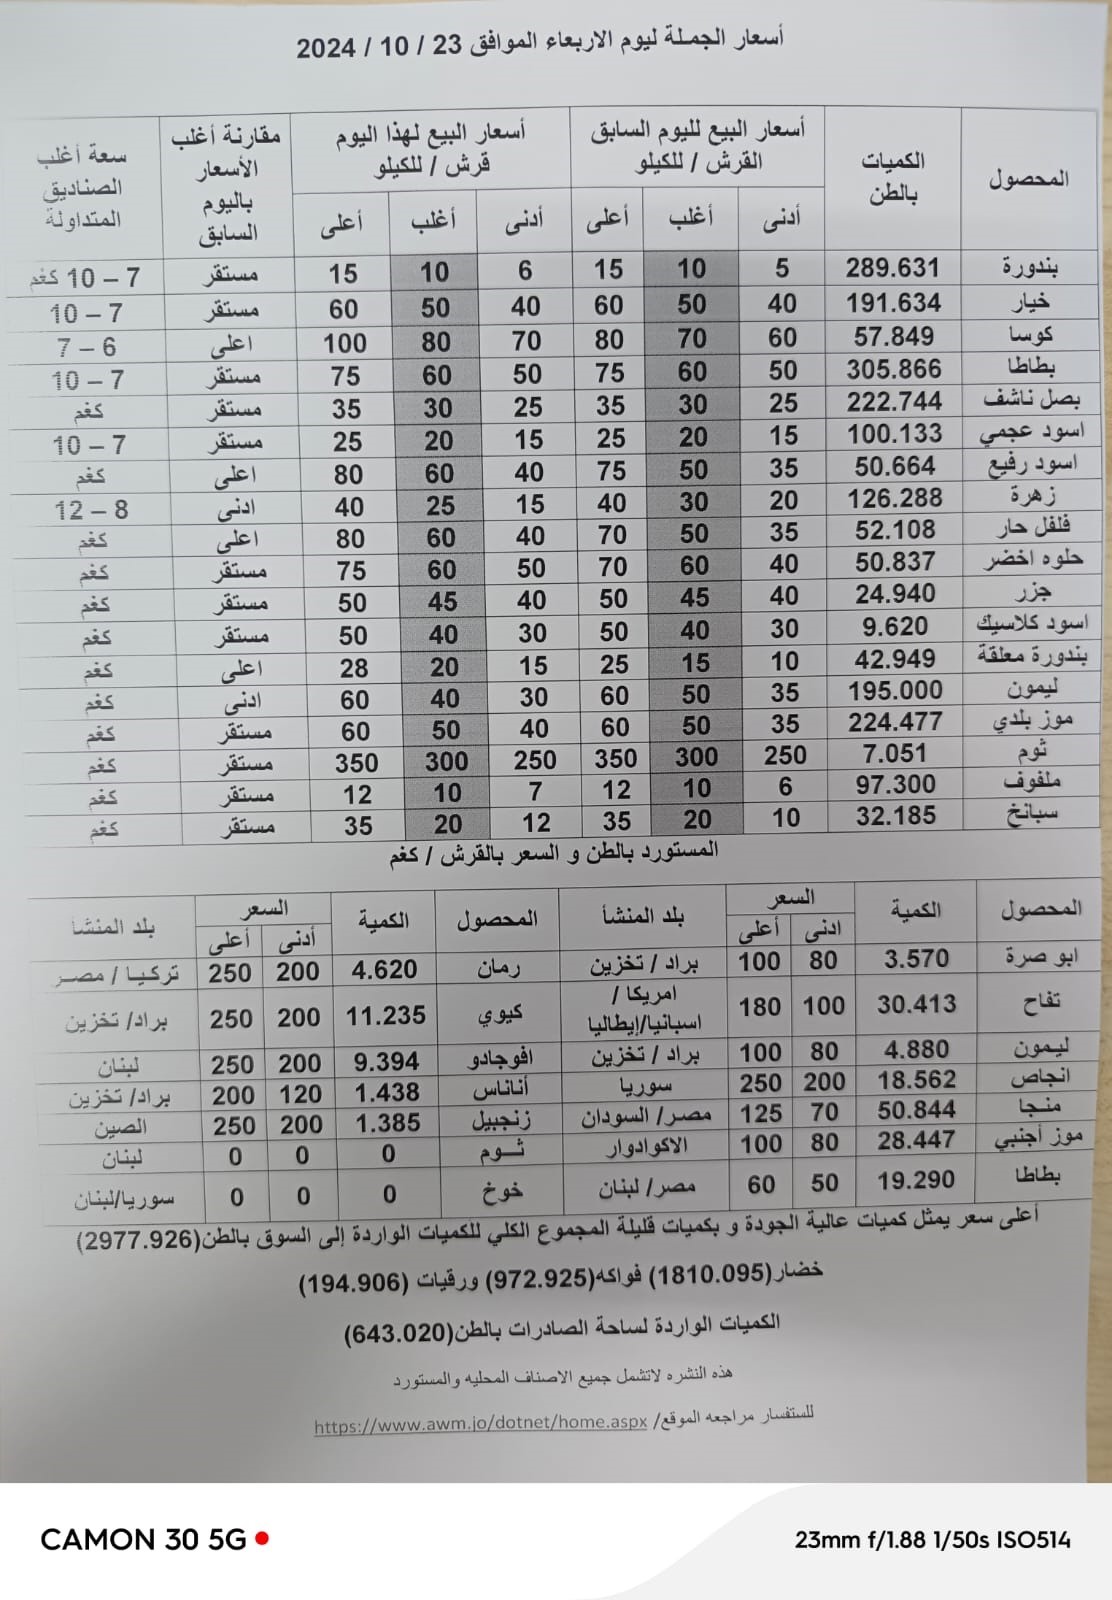 أسعار الجملة ليوم الاربعاء الموافق 23 / 10 / 2024
المحصول | الكميات بالطن | أسعار البيع لليوم السابق القرش / للكيلو | أسعار البيع لهذا اليوم قرش / للكيلو | مقارنة أغلب الأسعار باليوم السابق | سعة أغلب الصناديق المتداولة
أدنى | أغلب | أعلى | أدنى | أغلب | أعلى
بندورة | 289.631 | 5 | 10 | 15 | 6 | 10 | 15 | مستقر | 7 – 10 كغم
خيار | 191.634 | 40 | 50 | 60 | 40 | 50 | 60 | مستقر | 7 – 10
كوسا | 57.849 | 60 | 70 | 80 | 70 | 80 | 100 | اعلى | 6 – 7
بطاطا | 305.866 | 50 | 60 | 75 | 50 | 60 | 75 | مستقر | 7 – 10
بصل ناشف | 222.744 | 25 | 30 | 35 | 25 | 30 | 35 | مستقر | كغم
اسود عجمي | 100.133 | 15 | 20 | 25 | 15 | 20 | 25 | مستقر | 7 – 10
اسود رفيع | 50.664 | 35 | 50 | 75 | 40 | 60 | 80 | اعلى | كغم
زهرة | 126.288 | 20 | 30 | 40 | 15 | 25 | 40 | ادنى | 8 – 12
فلفل حار | 52.108 | 35 | 50 | 70 | 40 | 60 | 80 | اعلى | كغم
حلوه اخضر | 50.837 | 40 | 60 | 70 | 50 | 60 | 75 | مستقر | كغم
جزر | 24.940 | 40 | 45 | 50 | 40 | 45 | 50 | مستقر | كغم
اسود كلاسيك | 9.620 | 30 | 40 | 50 | 30 | 40 | 50 | مستقر | كغم
بندورة معلقة | 42.949 | 10 | 15 | 25 | 15 | 20 | 28 | اعلى | كغم
ليمون | 195.000 | 35 | 50 | 60 | 30 | 40 | 60 | ادنى | كغم
موز بلدي | 224.477 | 35 | 50 | 60 | 40 | 50 | 60 | مستقر | كغم
ثوم | 7.051 | 250 | 300 | 350 | 250 | 300 | 350 | مستقر | كغم
ملفوف | 97.300 | 6 | 10 | 12 | 7 | 10 | 12 | مستقر | كغم
سبانخ | 32.185 | 10 | 20 | 35 | 12 | 20 | 35 | مستقر | كغم
المستورد بالطن و السعر بالقرش / كغم
المحصول | الكمية | السعر | بلد المنشأ | المحصول | الكمية | السعر | بلد المنشأ
ادنى | أعلى | أدنى | أعلى
ابو صرة | 3.570 | 80 | 100 | براد / تخزين | رمان | 4.620 | 200 | 250 | تركيا / مصر
تفاح | 30.413 | 100 | 180 | امريكا / اسبانيا/إيطاليا | كيوي | 11.235 | 200 | 250 | براد/ تخزين
ليمون | 4.880 | 80 | 100 | براد / تخزين | افوجادو | 9.394 | 200 | 250 | لبنان
انجاص | 18.562 | 200 | 250 | سوريا | أناناس | 1.438 | 120 | 200 | براد/ تخزين
منجا | 50.844 | 70 | 125 | مصر/ السودان | زنجبيل | 1.385 | 200 | 250 | الصين
موز أجنبي | 28.447 | 80 | 100 | الاكوادوار | ثوم | 0 | 0 | 0 | لبنان
بطاطا | 19.290 | 50 | 60 | مصر/ لبنان | خوخ | 0 | 0 | 0 | سوريا/لبنان
أعلى سعر يمثل كميات عالية الجودة و بكميات قليلة المجموع الكلي للكميات الواردة إلى السوق بالطن(2977.926)
خضار(1810.095) فواكه(972.925) ورقيات (194.906)
الكميات الواردة لساحة الصادرات بالطن(643.020)
هذه النشره لاتشمل جميع الاصناف المحليه والمستورد
للستفسار مراجعه الموقع/ https://www.awm.jo/dotnet/home.aspx
CAMON 30 5G
23mm f/1.88 1/50s ISO514